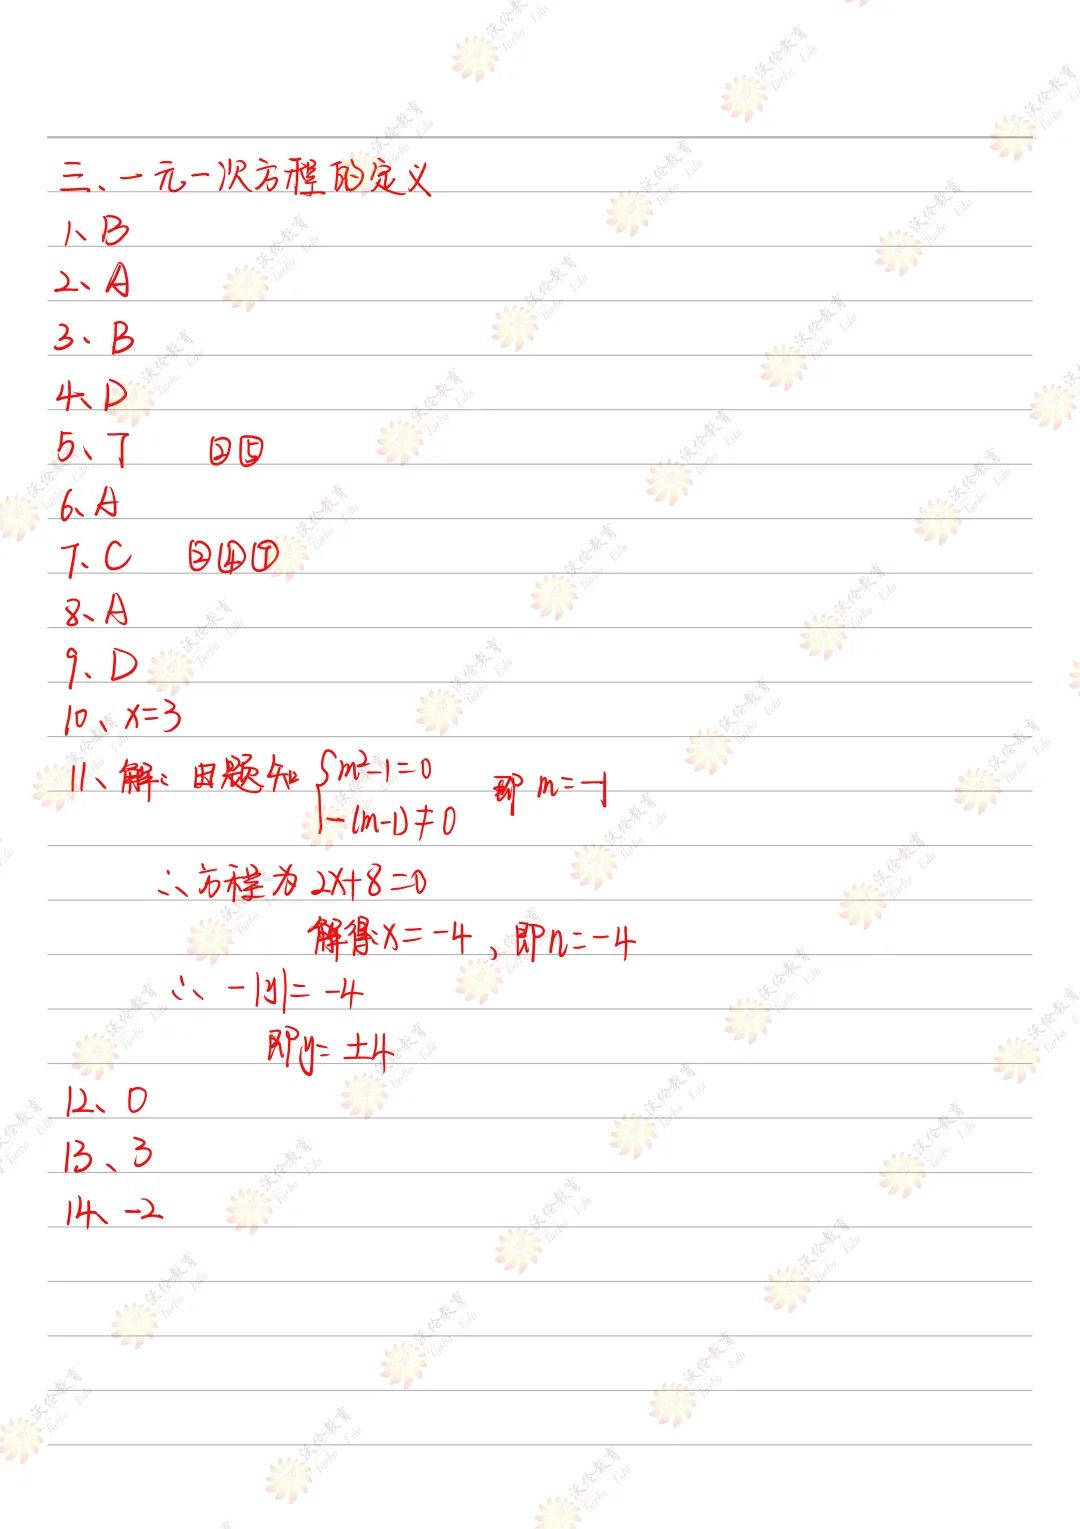 三、一元一次方程的定义
1、B
2、A
3、B
4、D
5、丁 ②⑤
6、A
7、C ②④⑦
8、A
9、D
10、x=3
11、解：由题知 {m²-1=0 即 m=-1
-(m-1)≠0
∴方程为 2x+8=0
解得x=-4，即n=-4
∴ -|y|=-4
即y=±4
12、0
13、3
14、-2
沃伦教育
Turbo Edu